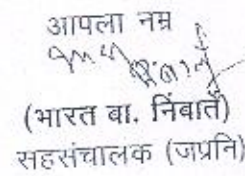 आपला नम्र
(भारत बा. निंबार्ते)
सहसंचालक (जप्रनि)